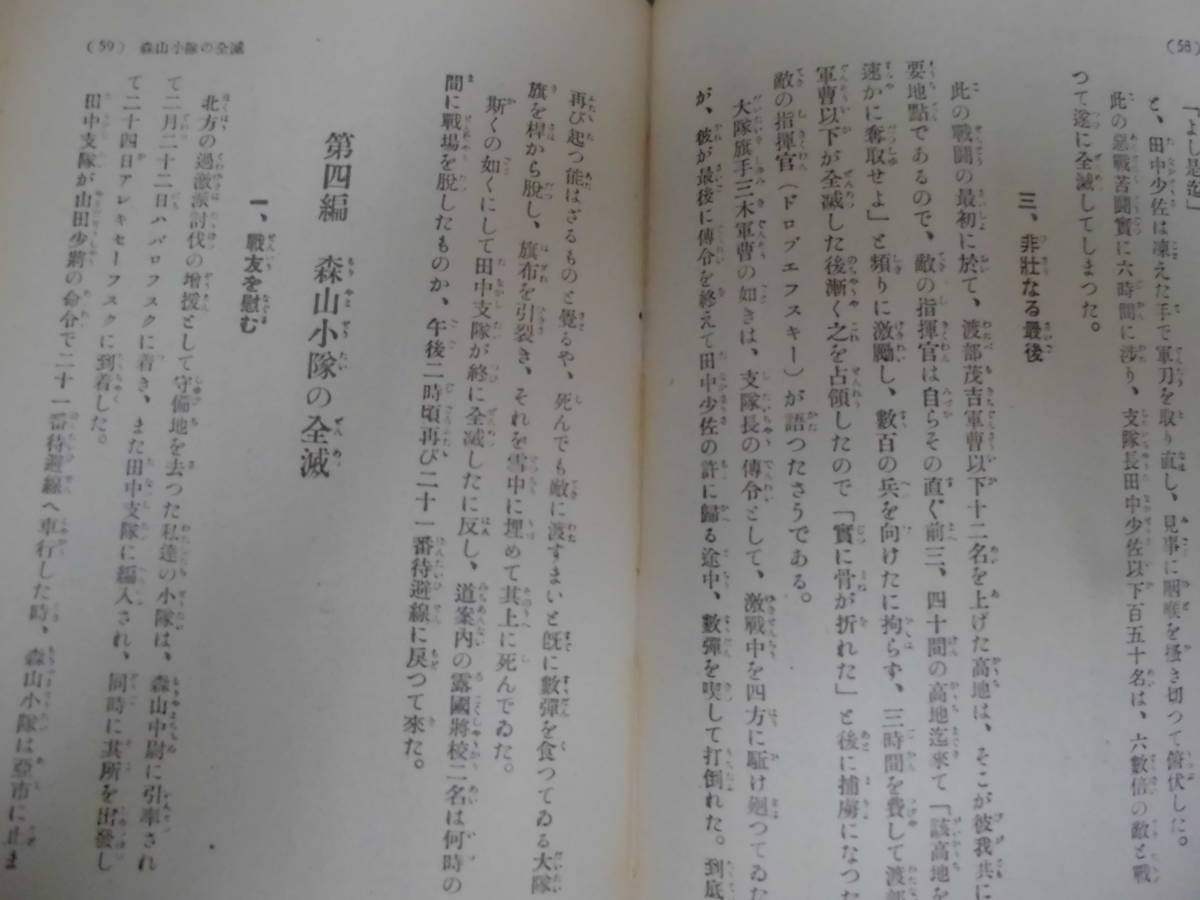 (58)
「よし是迄」
と、田中少佐は凍えた手で軍刀を取り直し、見事に咽喉を掻き切つて俯伏した。
此の惡戰苦鬪實に六時間に渉り、支隊長田中少佐以下百五十名は、六數倍の敵と戰
つて遂に全滅してしまつた。
三、非壯なる最後
此の戰鬪の最初に於て、渡部茂吉軍曹以下十二名を上げた高地は、そこが彼我共に
要地點であるので、敵の指揮官は自らその直ぐ前三、四十間の高地迄來て「該高地を
速かに奪取せよ」と頻りに激勵し、數百の兵を向けたに拘らず、三時間を費して渡部
軍曹以下が全滅した後漸く之を占領したので「實に骨が折れた」と後に捕虜になつた
敵の指揮官(ドロブエフスキー)が語つたさうである。
大隊旗手三木軍曹の如きは、支隊長の傳令として、激戰中を四方に駈け廻つてゐた
が、彼が最後に傳令を終えて田中少佐の許に歸る途中、數彈を喫して打倒れた。到底
(59) 森山小隊の全滅
再び起つ能はざるものと覺るや、死んでも敵に渡すまいと既に數彈を食つてゐる大隊
旗を桿から脱し、旗布を引裂き、それを雪中に埋めて其上に死んでゐた。
斯くの如くにして田中支隊が終に全滅したに反し、道案内の露國將校二名は何時の
間に戰場を脱したものか、午後二時頃再び二十一番待避線に戻つて來た。
第四編 森山小隊の全滅
一、戰友を慰む
北方の過激派討伐の增援として守備地を去つた私達の小隊は、森山中尉に引率され
て二月二十二日ハバロフスクに着き、また田中支隊に編入され、同時に其所を出發し
て二十四日アレキセーフスクに到着した。
田中支隊が山田少將の命令で二十一番待避線へ車行した時、森山小隊は亞市に止ま